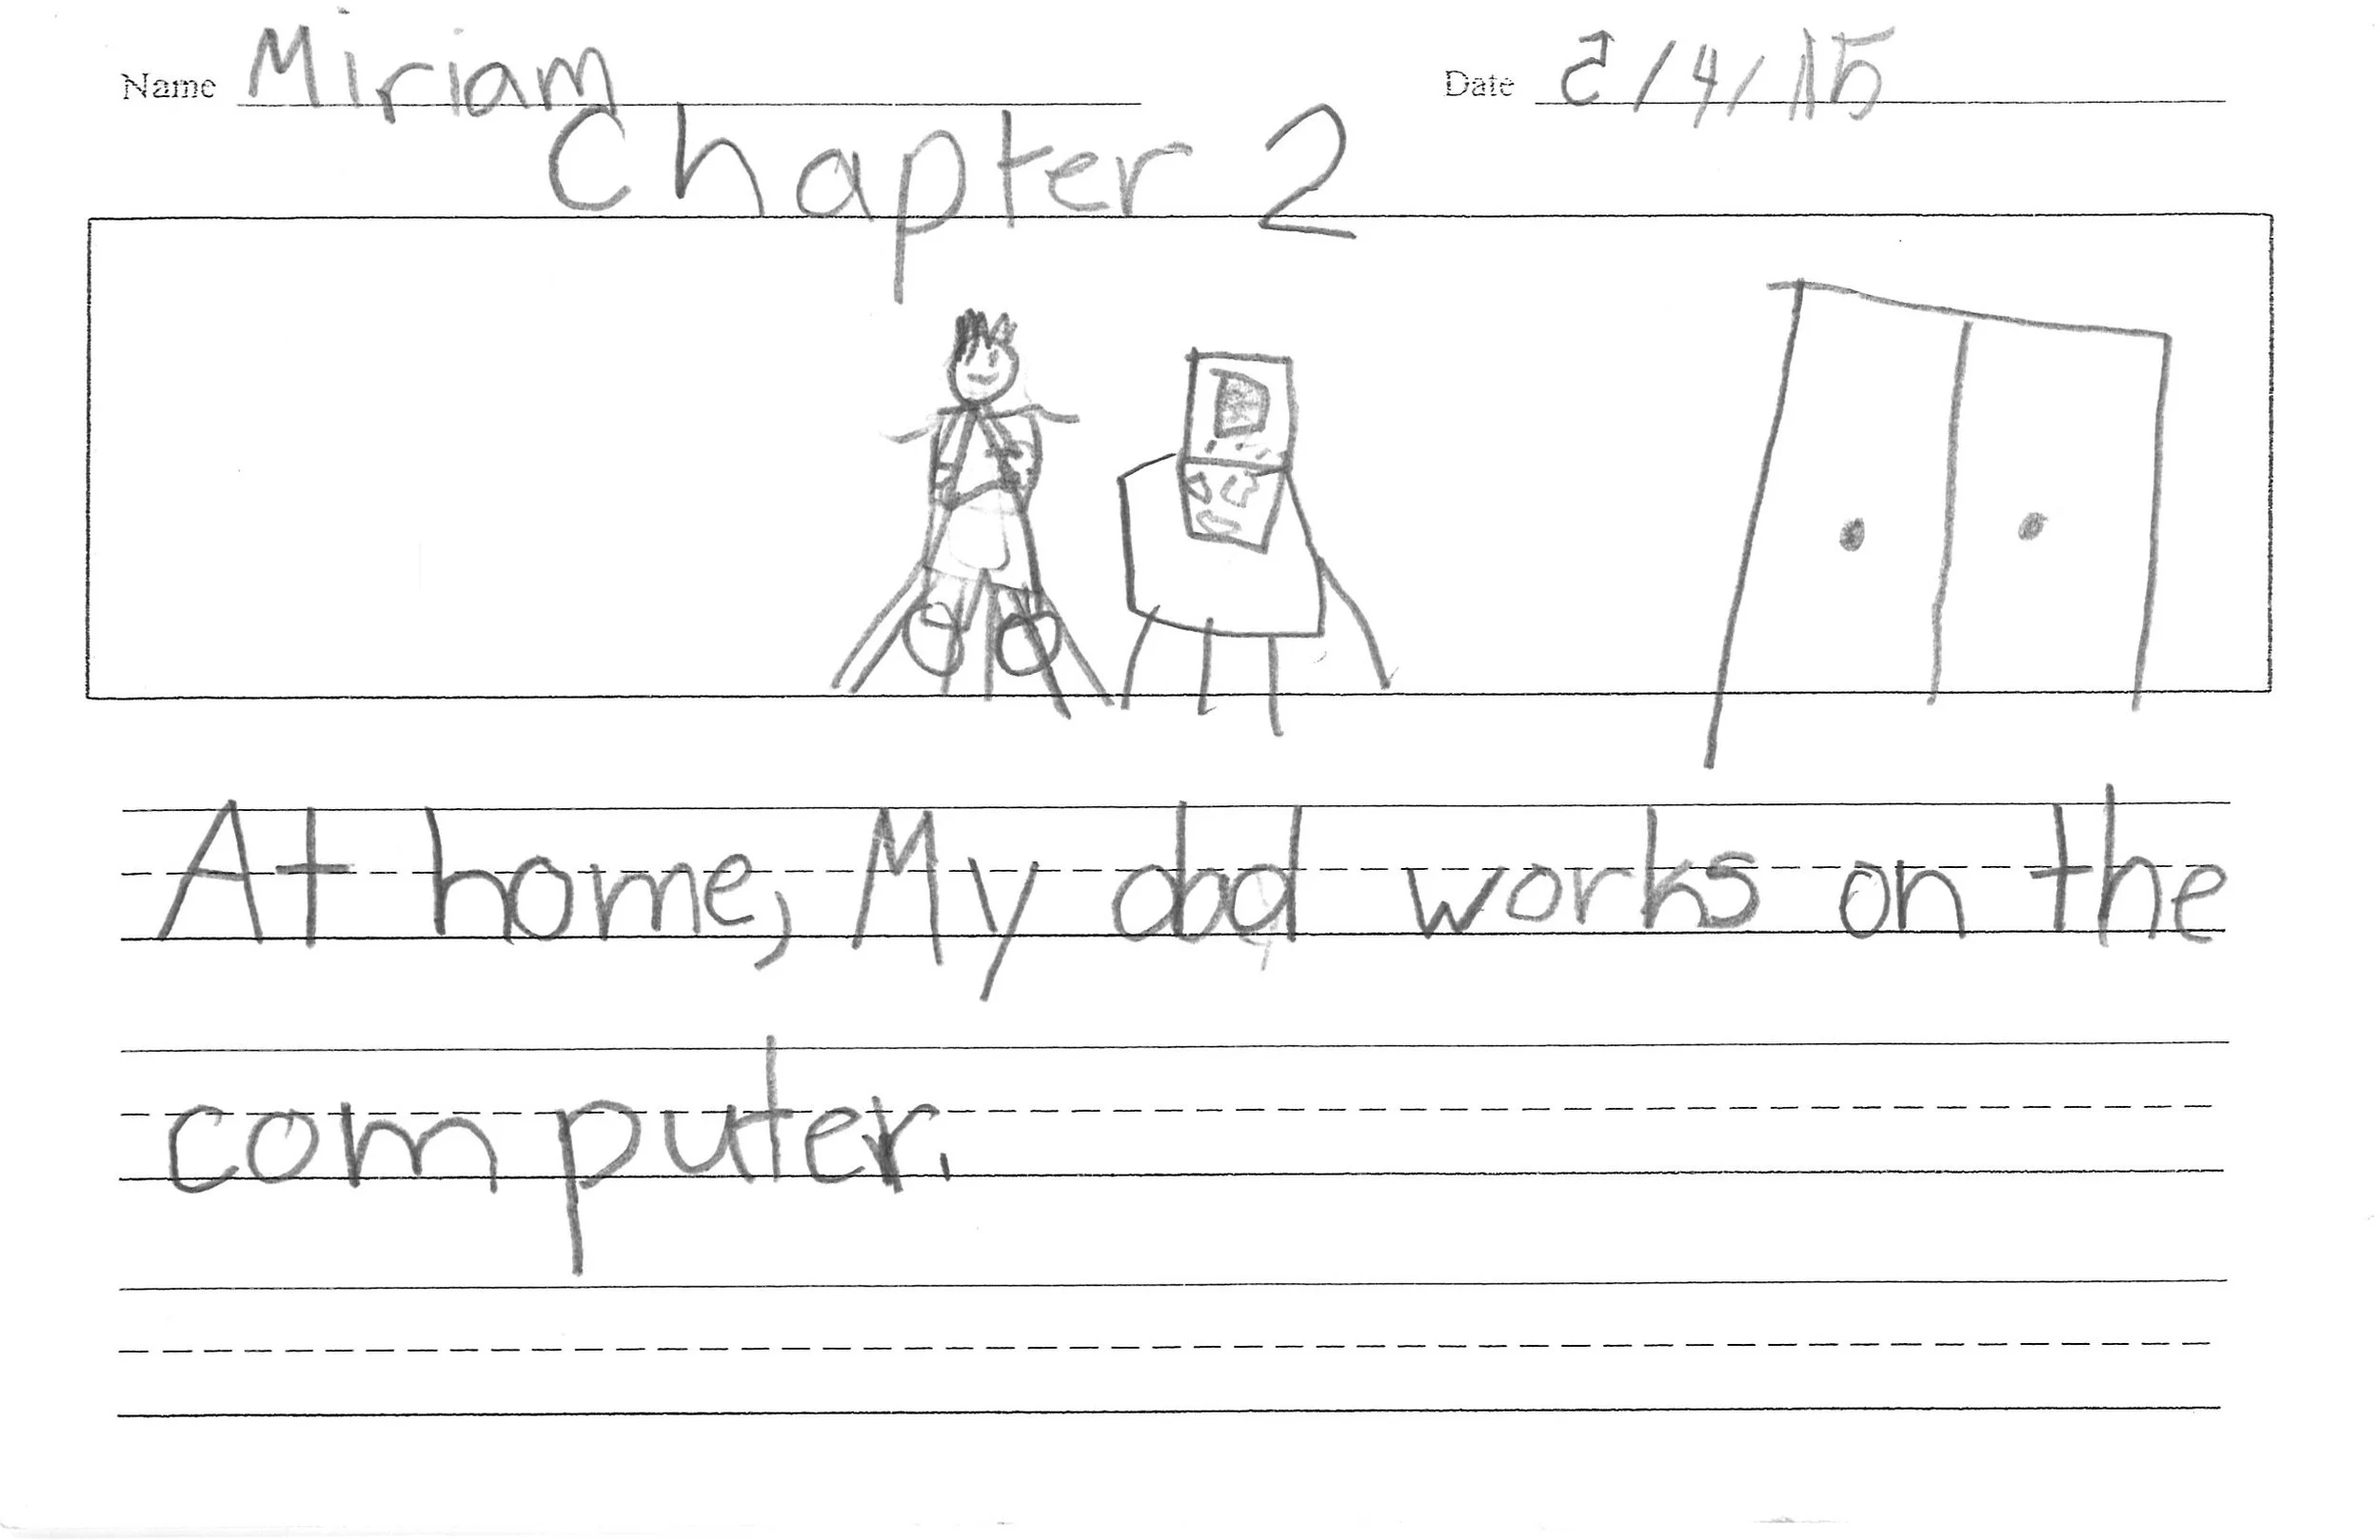 Name Miriam Date 5/4/15
Chapter 2
At home, My dad works on the
computer.